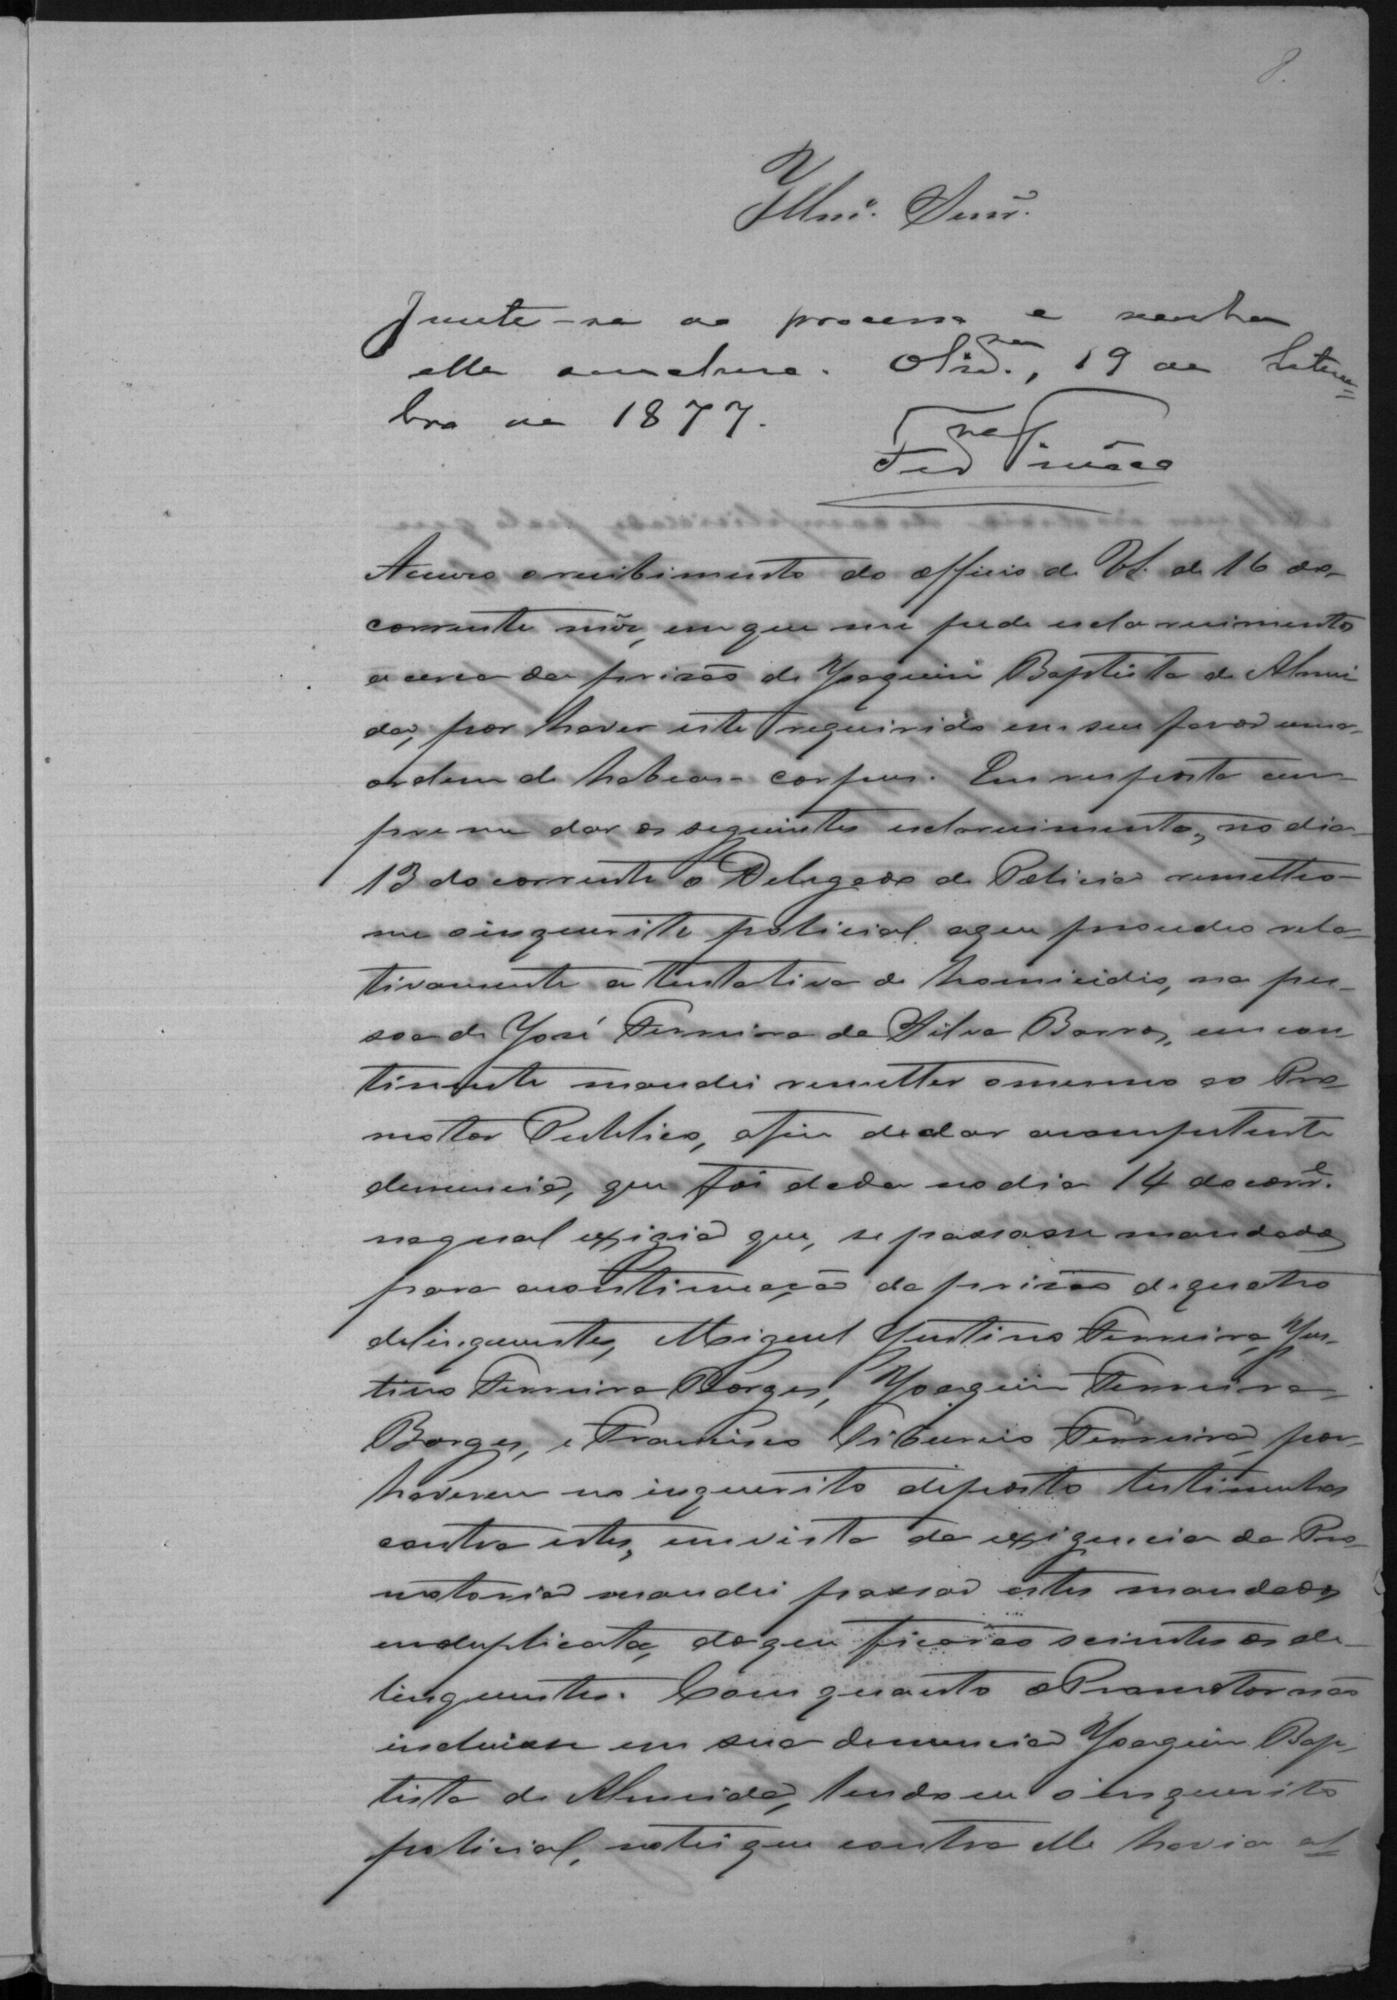 8.
Illmº. Senr.
Junte-se ao processo e venha
elle concluso. Olivrª., 19 de Setem=
bro de 1877.
Accuso o recebimento do officio de Vª. de 16 do
corrente mês, em que me pede esclarecimentos
a cerca da prisão de Joaquim Baptista de Almei
da, por haver este requirido em seu favor uma
ordem de habeas-corpus. Em resposta cum-
pre me dar os seguintes esclarecimentos, no dia
13 do corrente o Delegado de Policia remetteo-
me o inquerito policial a que procedeo rela-
tivamente a tentativa de homicidio, na pes-
soa de José Ferreira da Silva Barros, em con
tinente mandei remetter o mesmo ao Pro-
motor Publico, afim de dar a competente
denuncia, que foi dada no dia 14 do corre.
na qual exigia que, se passasse mandados
para a continuação da prisão de quatro
delinquentes, Miguel Justino Ferreira, Jus-
tino Ferreira Borges, Joaquim Ferreira
Borges, e Francisco Tiburcio Ferreira, por
haverem no inquerito deposto testimunhas
contra estes, em vista da exigencia da Pro-
motoria mandei passar estes mandados
em duplicata, do que ficarão scientes os de-
linquentes. Com quanto o Promotor não
incluisse em sua denuncia Joaquim Bap-
tista de Almeida, lendo eu o inquerito
policial, notei que contra elle havia al=